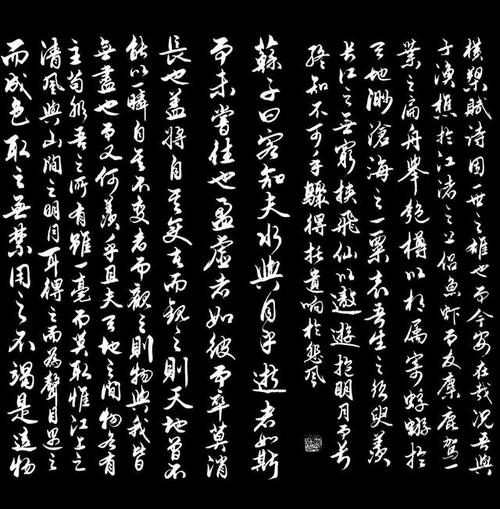 横槊賦诗固一世之雄也而今安在哉况吾與
子漁樵於江渚之上侣魚虾而友麋鹿駕一
葉之扁舟舉匏樽以相属寄蜉蝣於
天地渺滄海之一粟哀吾生之須臾羡
長江之无窮挟飛仙以遨遊抱明月而長
終知不可乎驟得托遺响於悲风
蘇子曰客知夫水與月乎逝者如斯
而未嘗往也盈虚者如彼而卒莫消
長也盖將自其变者而觀之則天地曾不
能以一瞬自其不变者而觀之則物與我皆
无盡也而又何羡乎且夫天地之間物各有
主苟非吾之所有雖一毫而莫取惟江上之
清風與山間之明月耳得之而為聲目遇之
而成色取之无禁用之不竭是造物